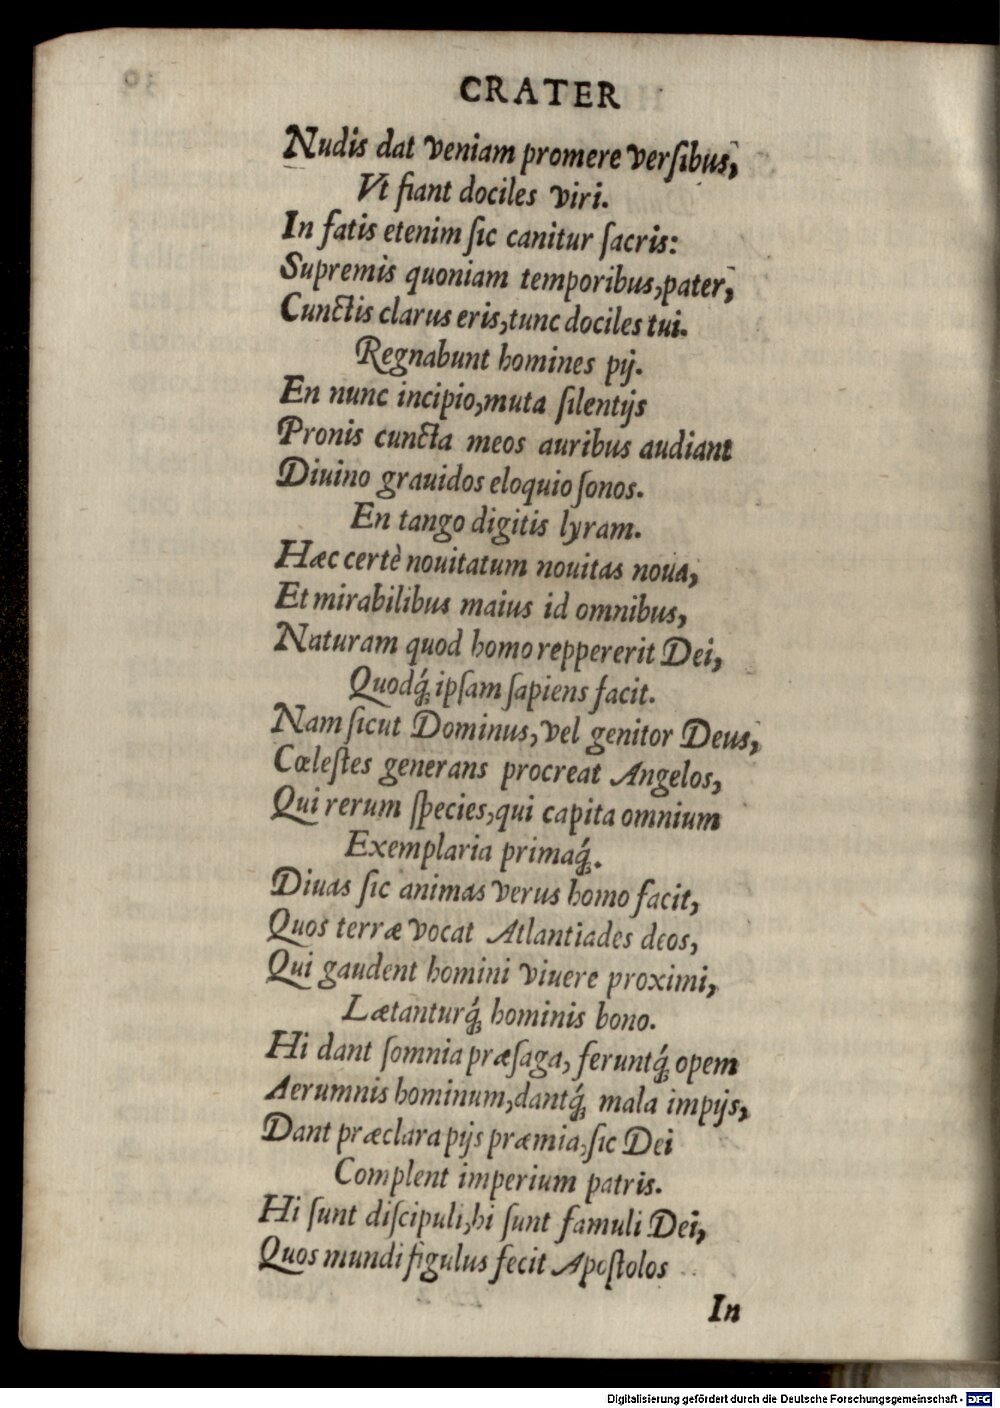 CRATER
Nudis dat veniam promere verſibus,
Vt fiant dociles viri.
In fatis etenim ſic canitur ſacris:
Supremis quoniam temporibus, pater,
Cunctis clarus eris, tunc dociles tui.
Regnabunt homines pij.
En nunc incipio, muta ſilentijs
Pronis cuncta meos auribus audiant
Diuino grauidos eloquio ſonos.
En tango digitis lyram.
Hæc certè nouitatum nouitas noua,
Et mirabilibus maius id omnibus,
Naturam quod homo reppererit Dei,
Quodq́; ipſam ſapiens facit.
Nam ſicut Dominus, vel genitor Deus,
Cœleſtes generans procreat Angelos,
Qui rerum ſpecies, qui capita omnium
Exemplaria primaq́;.
Diuas ſic animas verus homo facit,
Quos terræ vocat Atlantiades deos,
Qui gaudent homini viuere proximi,
Lætanturq́; hominis bono.
Hi dant ſomnia præſaga, feruntq́; opem
Aerumnis hominum, dantq́; mala impijs,
Dant præclara pijs præmia, ſic Dei
Complent imperium patris.
Hi ſunt diſcipuli, hi ſunt famuli Dei,
Quos mundi figulus fecit Apoſtolos
In
Digitalisierung gefördert durch die Deutsche Forschungsgemeinschaft - DFG